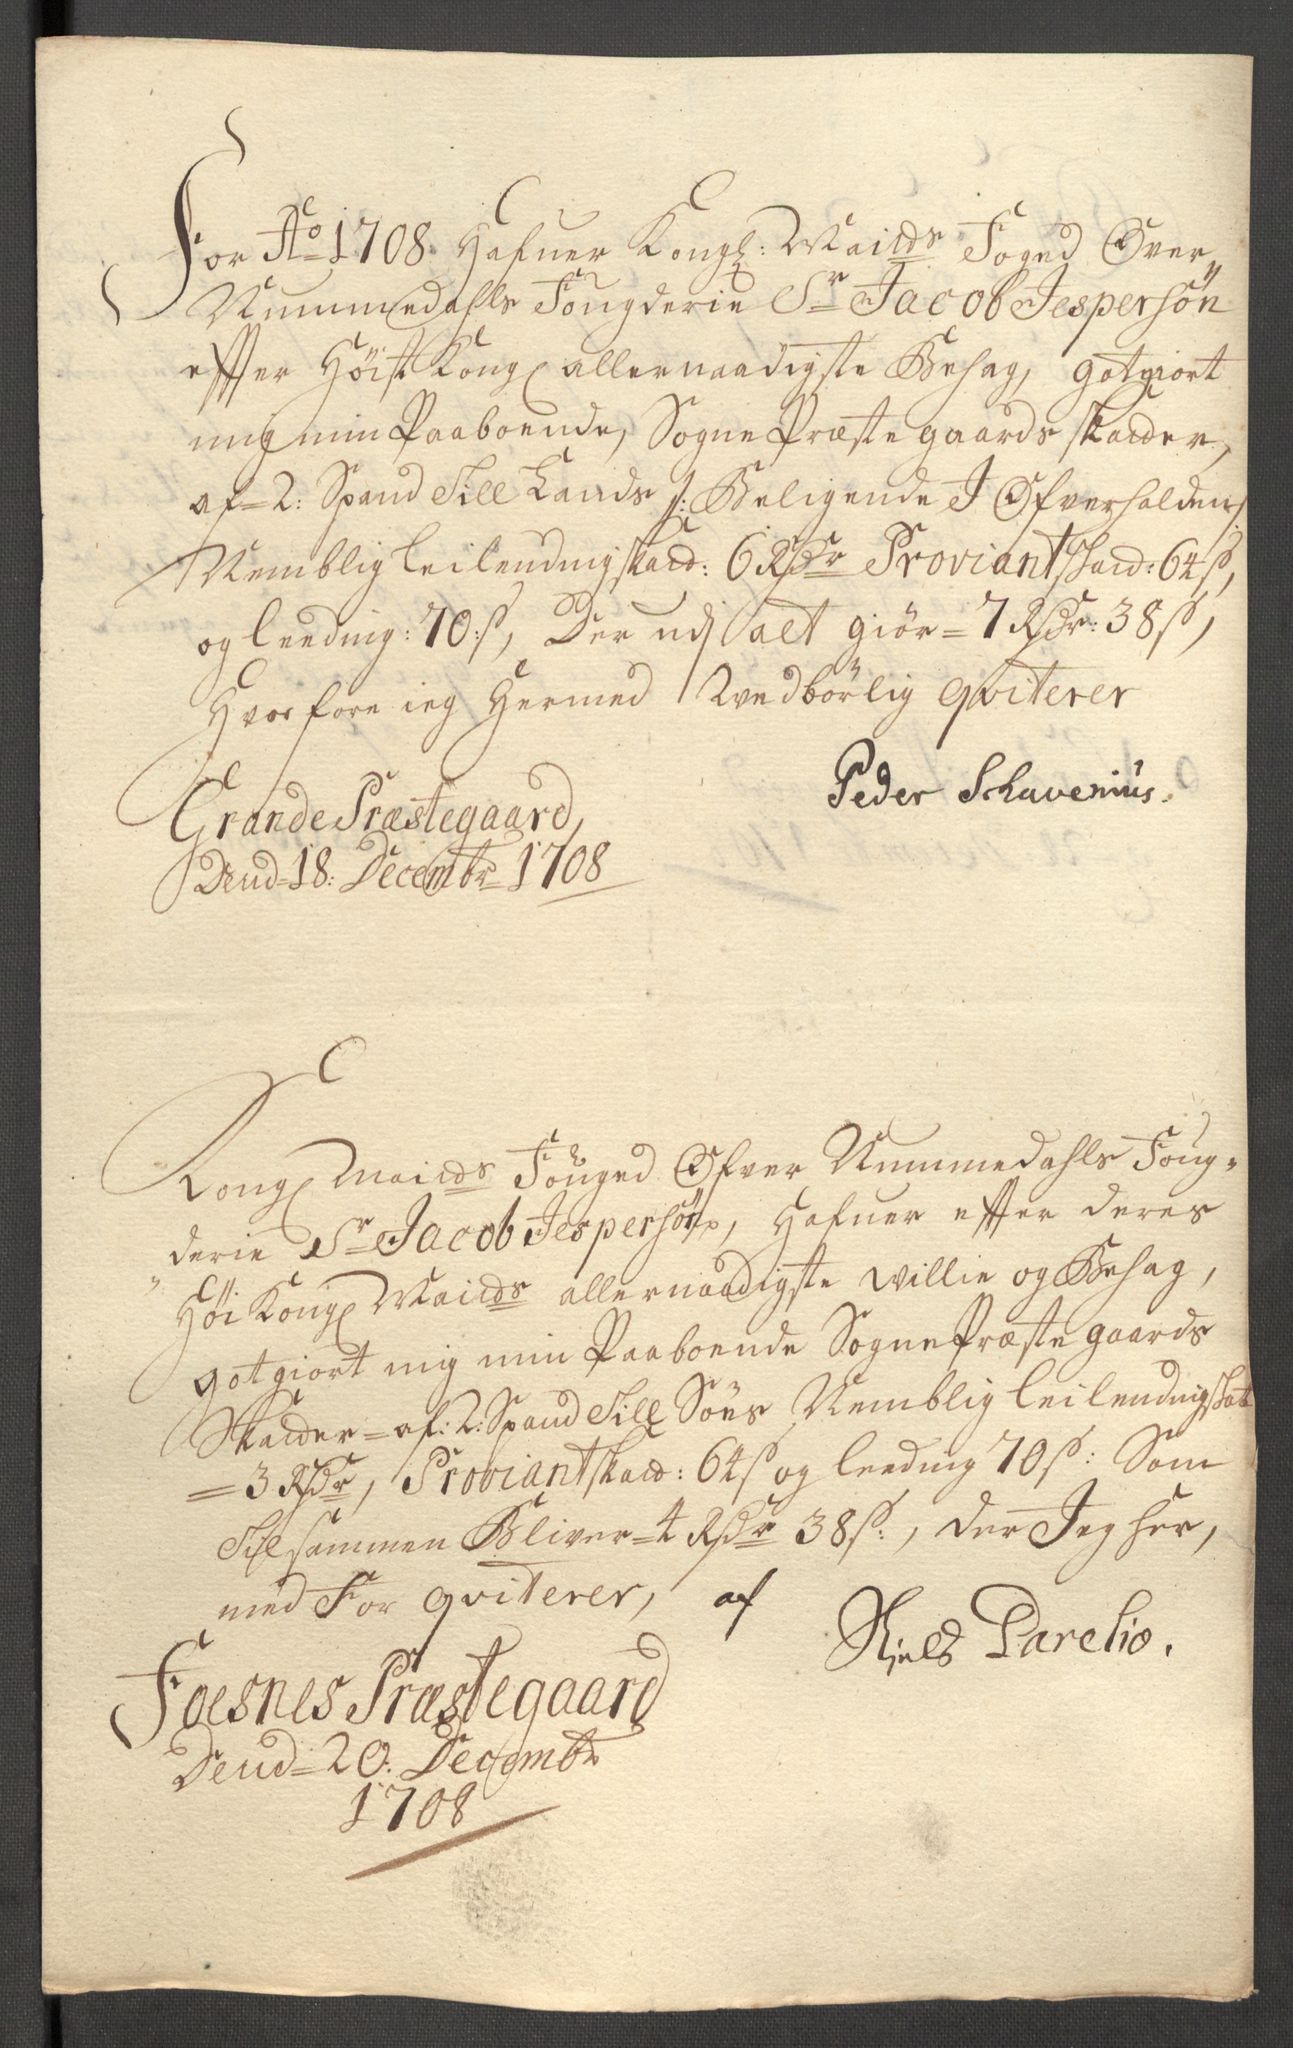 For Ao 1708. Hafuer Kongl: Maitds Foged Over
Nummedahls Fougderie Sr Jacob Jespersøn
effter Høist Kongl allernaadigste Behag, gotgiort
mig min Paaboende, Sogne Præste gaards skatder,
af = 2: Spand Till Lands /: Beligende J Ofverhalden /
Nemblig leilendingskatd: 6 Rdr Proviantskatd: 64 s,
og leeding: 70: s, Der udj alt giør = 7 Rdr: 38 s,
Hvor fore ieg Hermed Wedbørlig qviterer
Peder Schavenius.
Grande Præstegaard,
Dend = 18: Decembr 1708
Kongl Maitds Fouged Ofver Nummedahls Foug-
derie Sr Jacob Jespersøn, Hafuer effter deres
Høi Kongl Maitds allernaadigste willie og Behag,
gotgiort mig min Paaboende Sogne Præste gaards
Skatder = af: 2: Spand Till Søes Nemblig leilendingskat
= 3 Rdr, Proviantskatd: 64 s og leeding 70 s: Som
Tilsammen Bliver = 4 Rdr 38 s:, der Jeg her,
med For qviterer, af
Niels Parelio.
Foesnes Præstegaard
Dend = 20: Decembr
1708